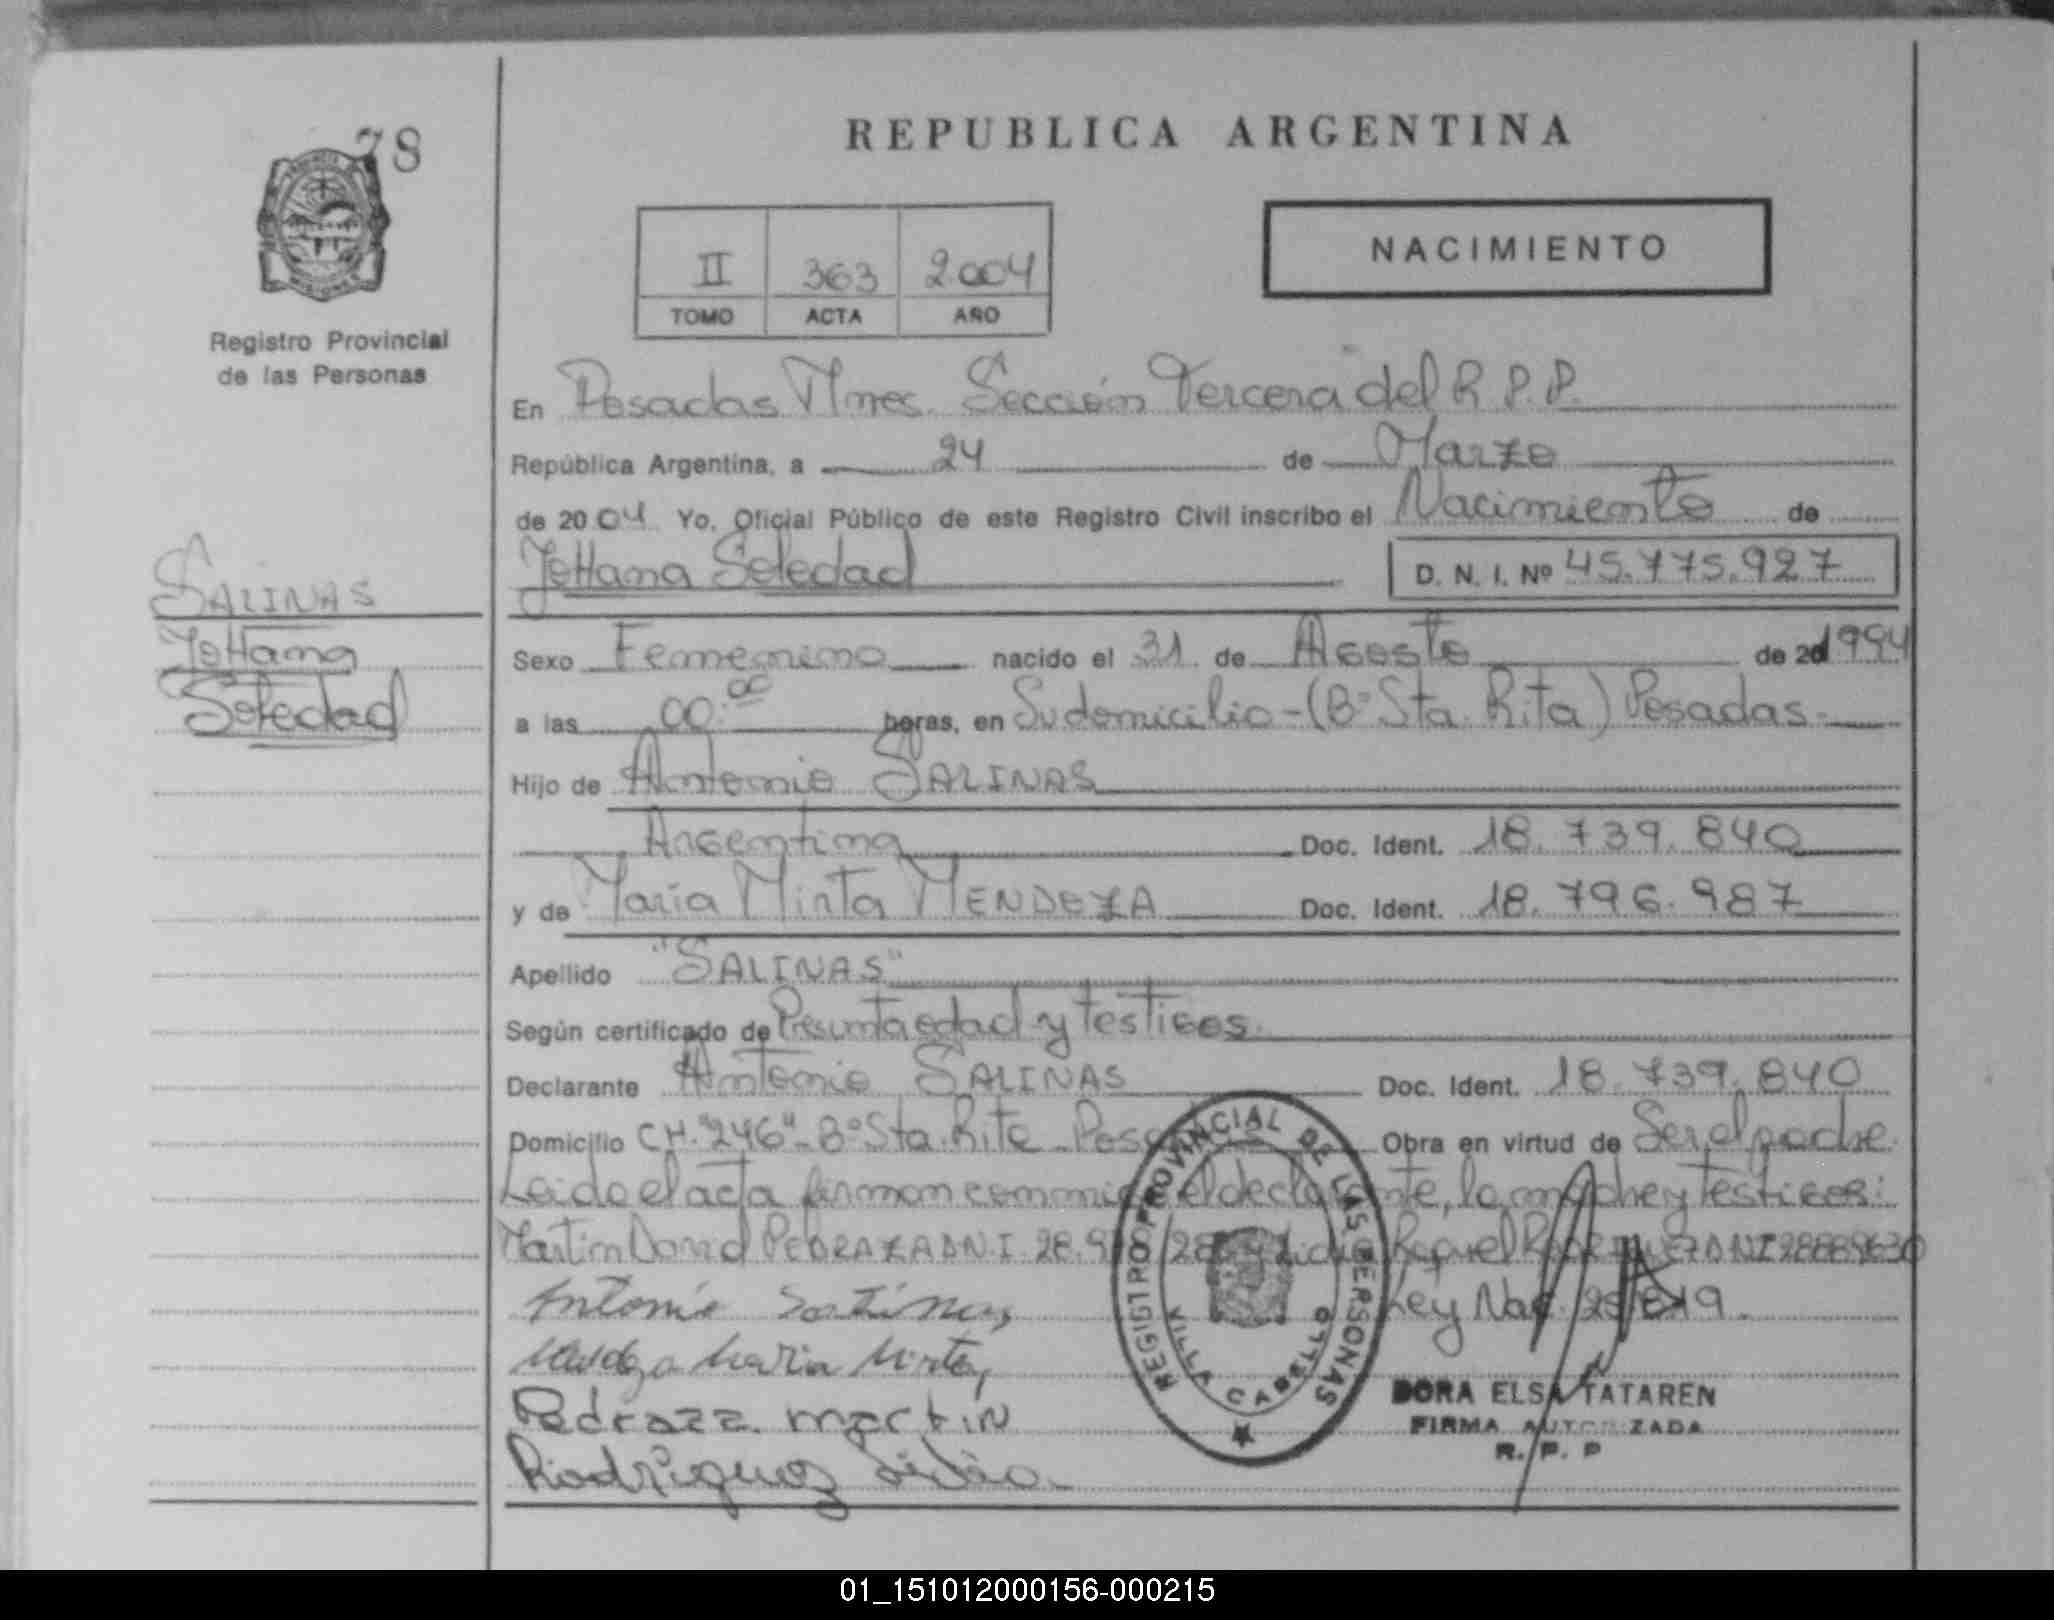 78
REPUBLICA ARGENTINA
NACIMIENTO
II 363 2.004
TOMO ACTA AÑO
Registro Provincial
de las Personas
En Posadas Mnes. Sección Tercera del R.P.P.
República Argentina, a 24 de Marzo
de 2004 Yo, Oficial Público de este Registro Civil inscribo el Nacimiento de
JoHana Soledad D. N. I. Nº 45.775.927
SALINAS
JoHana
Soledad
Sexo Femenino nacido el 31 de Agosto de 1994
a las 00:00 horas, en Su domicilio-(Bº Sta. Rita) Posadas-
Hijo de Antonio SALINAS
Argentina Doc. Ident. 18.739.840
y de María Mirta MENDOZA Doc. Ident. 18.796.987
Apellido "SALINAS"
Según certificado de Presunta edad y testigos.
Declarante Antonio SALINAS Doc. Ident. 18.739.840
Domicilio CH."246"-Bº Sta. Rita Obra en virtud de Ser el padre.
Leida el acta firman conmigo el declarante, la madre y testigos:
Martin David PEDRAZA DNI 28.9 Lidia Raquel RODRIGUEZ DNI
Ley Nac.
Antonio Salinas,
Mendoza Maria Mirta,
Pedraza martin
Rodriguez Lidia
REGISTRO PROVINCIAL DE LAS PERSONAS
VILLA CABELLO
DORA ELSA TATAREN
FIRMA AUTORIZADA
R. P. P
01_151012000156-000215